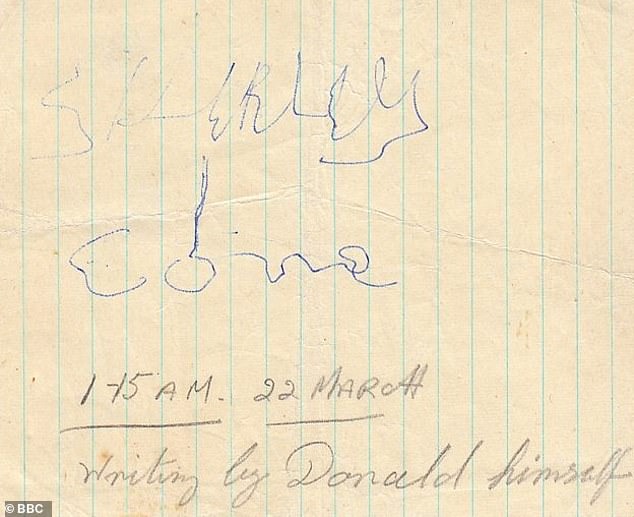 SHERLEY
1-15 A.M. 22 MARCH
Writing by Donald himself
BBC